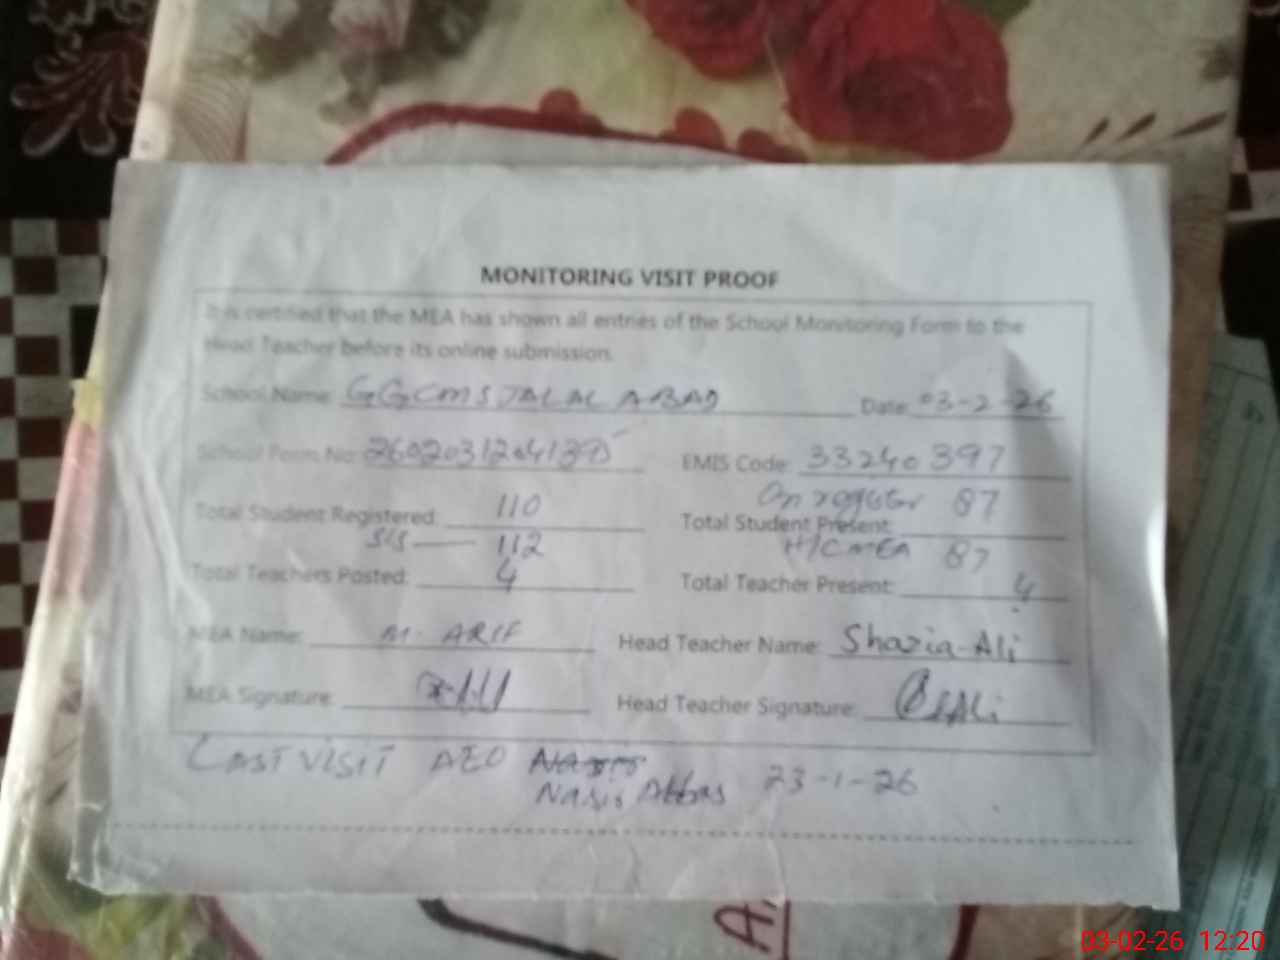 MONITORING VISIT PROOF
It is certified that the MEA has shown all entries of the School Monitoring Form to the
Head Teacher before its online submission.
School Name: GGCMS JALAL ABAD Date: 03-2-26
School Form No: EMIS Code: 33240397
On register 87
Total Student Registered: 110 Total Student Present:
SIS — 112 H/C MEA 87
Total Teachers Posted: 4 Total Teacher Present: 4
MEA Name: M. ARIF Head Teacher Name: Shazia-Ali
MEA Signature: Head Teacher Signature:
LAST VISIT AEO 23-1-26
Nasir Abbas
A
03-02-26 12:20